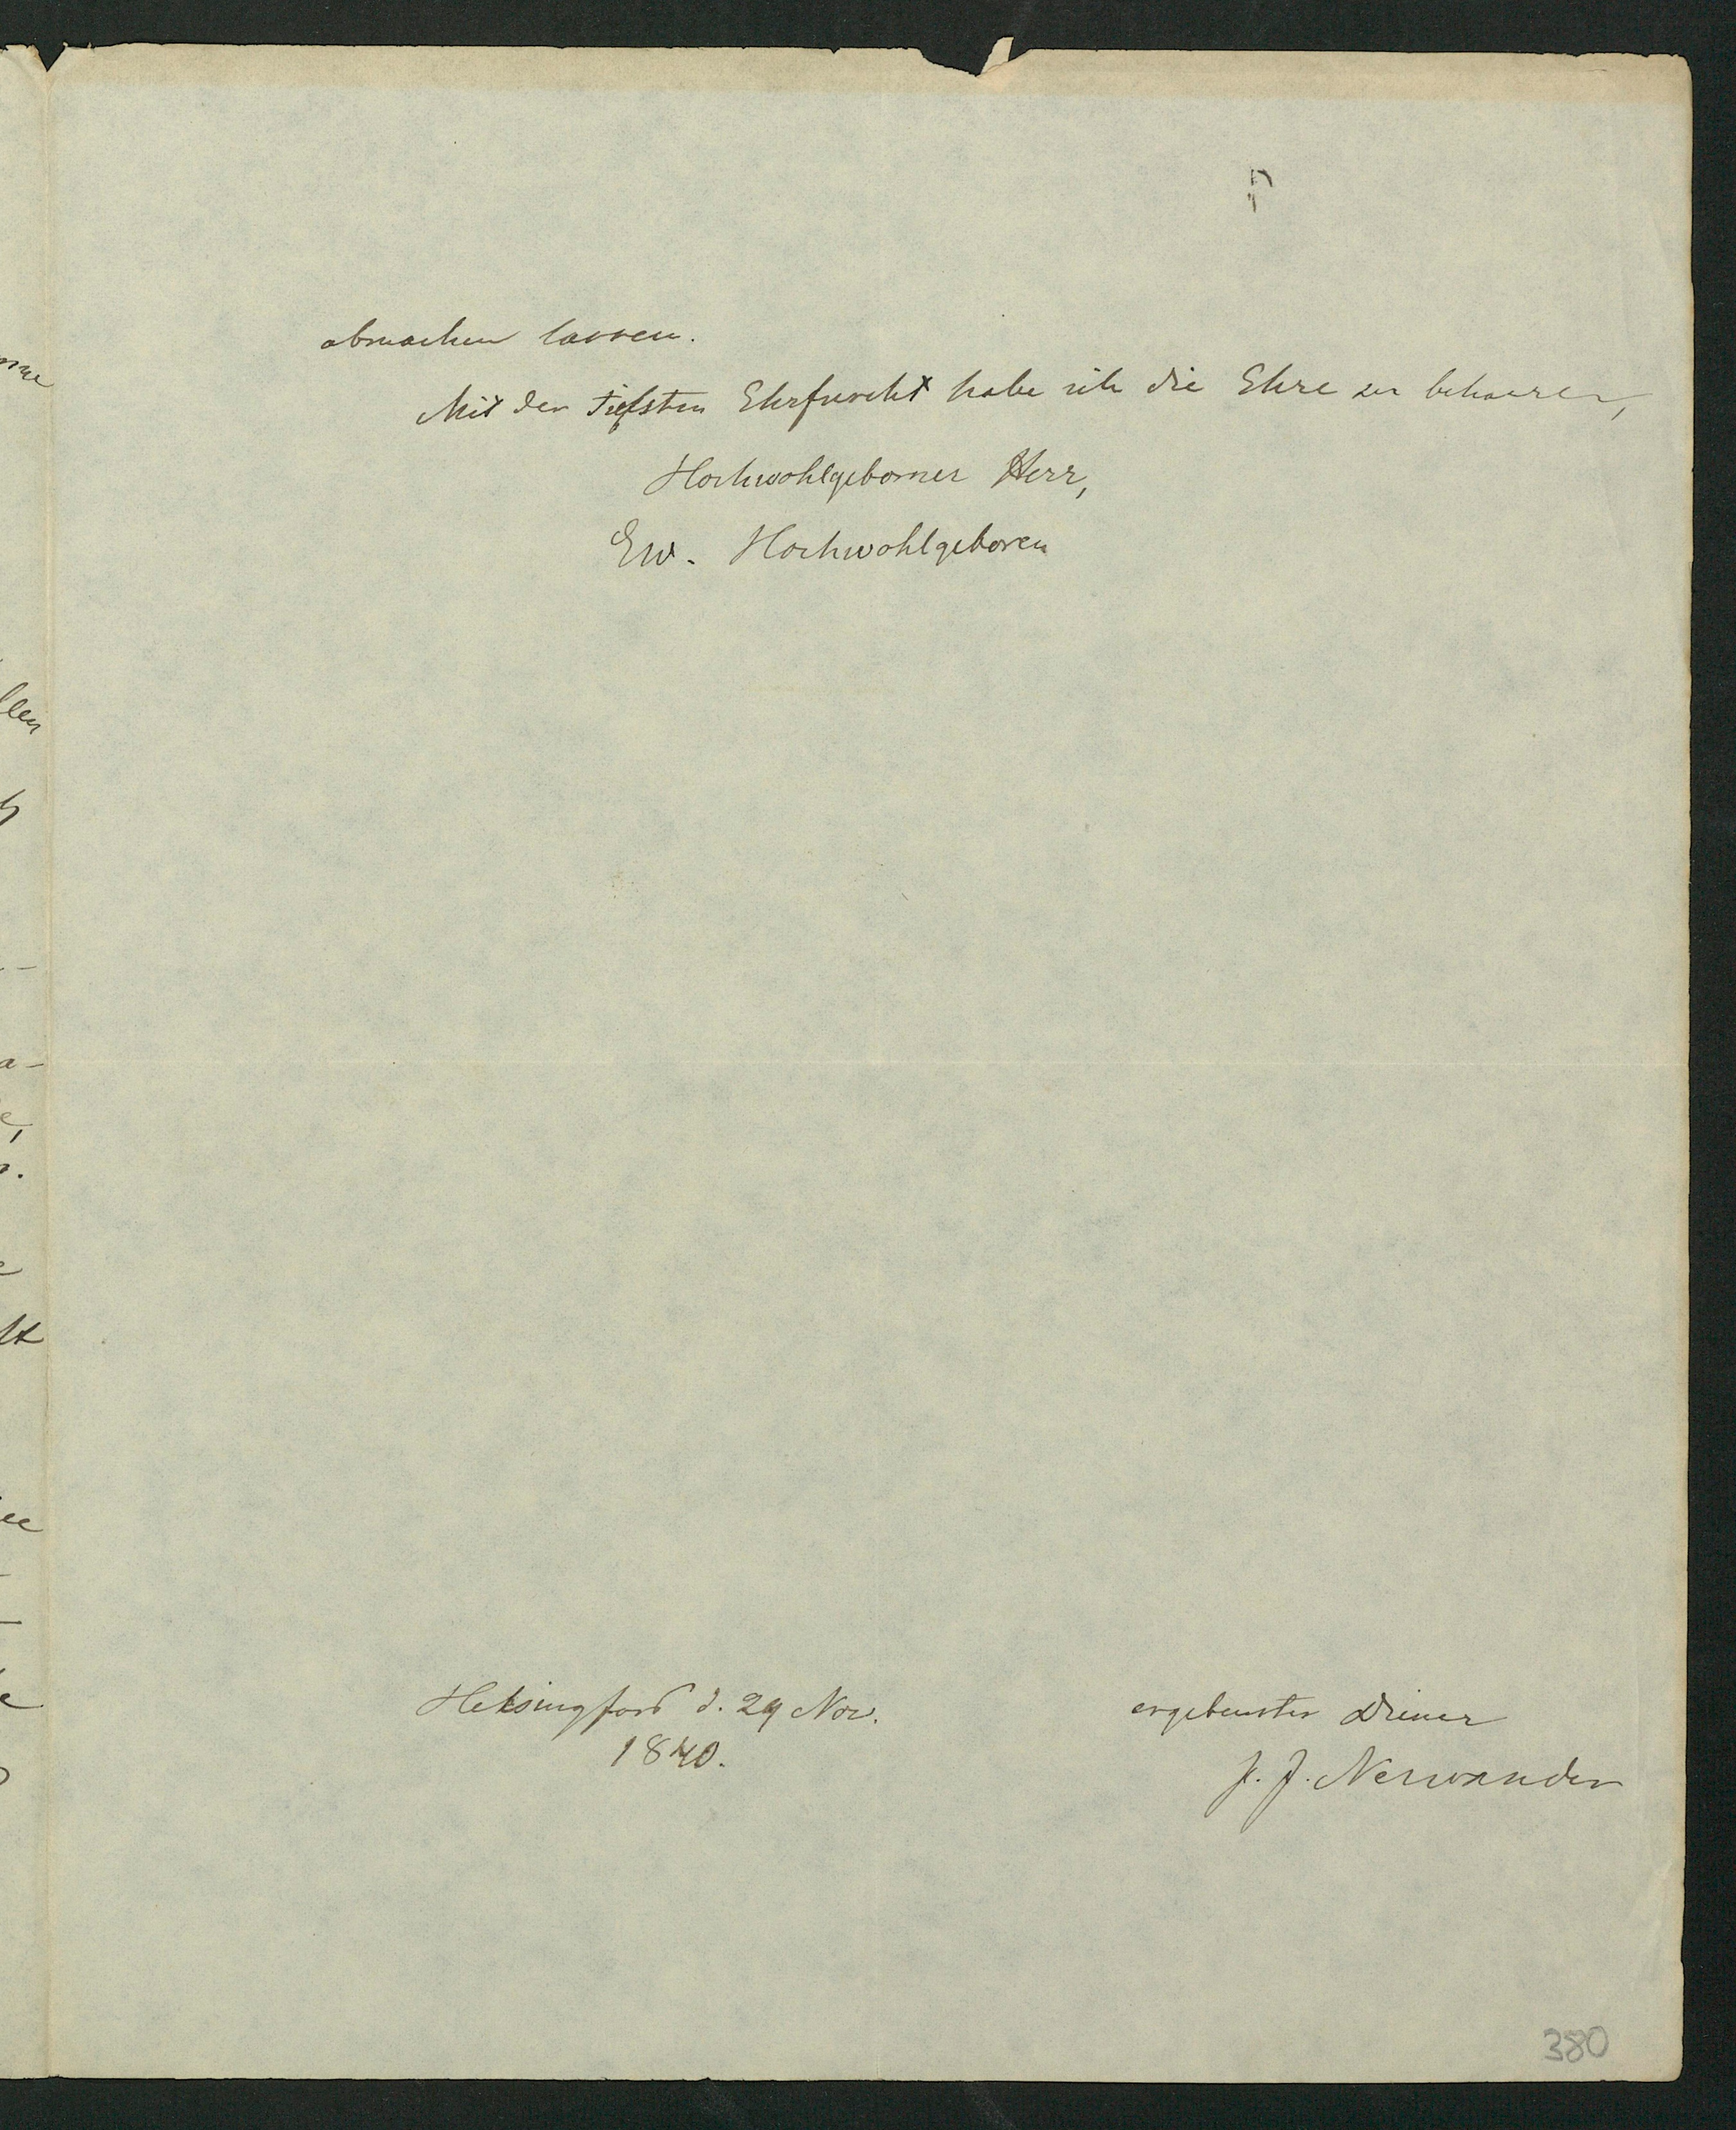 abmachen lassen.
Mit der tiefsten Ehrfurcht habe ich die Ehre zu beharren,
Hochwohlgeborner Herr,
Ew. Hochwohlgeboren
Helsingfors d. 29 Nov.
1840.
ergebenster Diener
J. J. Nervander
380